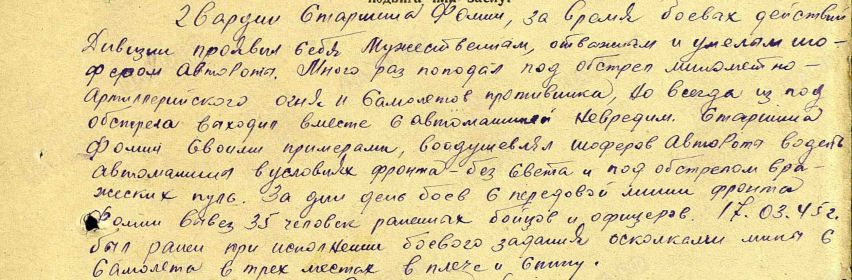 подвига или заслуг
Гвардии Старшина Фомин, за время боевах действий
Дивизии проявил Себя Мужественным, отважным и умелам шо-
фером АвтоРота. Много раз поподал под обстрел минометно-
Артиллерийского огня и Самолетов противника, Но всегда из под
обстрела выходил вместе С автомашиной Невредим. Старшина
Фомин Своими примерами, воодушевлял шоферов АвтоРота водеть
автомашина в условиях фронта - без Света и под обстрелом вра-
жеских пуль. За дни боев С передовой линии фронта
Фомин вывез 35 человек раненнах бойцов и офицеров. 17.03.45 г.
был ранен при исполнении боевого задания осколками мина С
Самолета в трех местах в плечо и Спину.